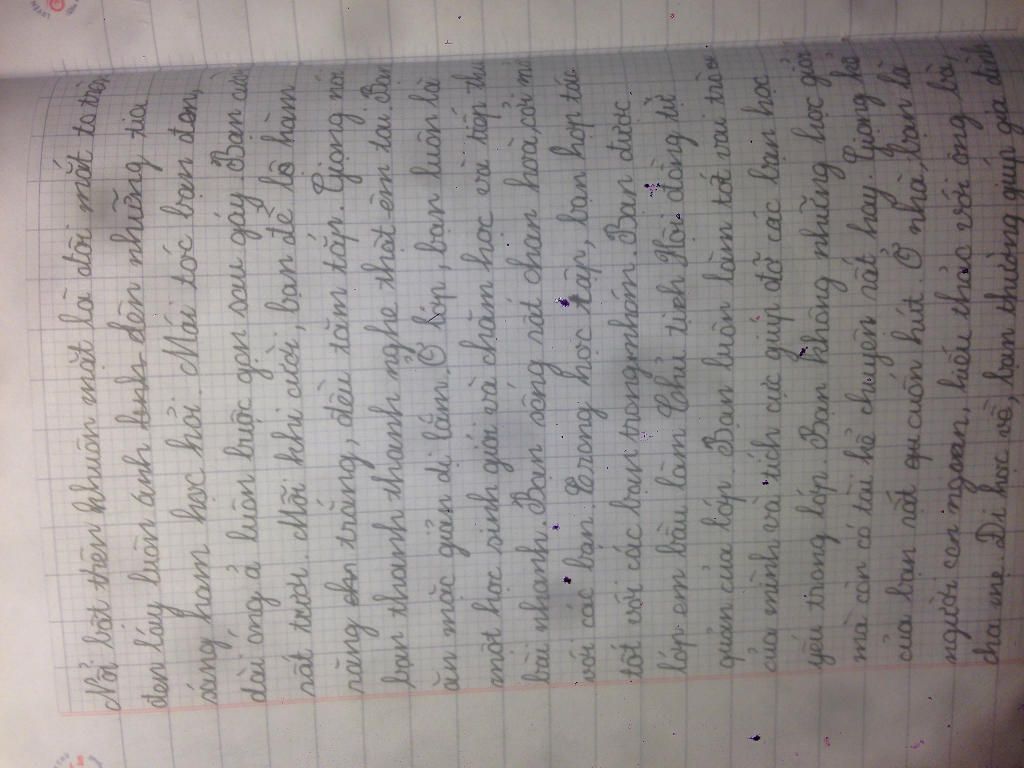 Nổi bật trên khuôn mặt là đôi mắt to tròn
đen láy luôn ánh lên những tia
sáng ham học hỏi. Mái tóc bạn đen,
dài óng ả luôn buộc gọn sau gáy. Bạn cười
rất tươi. Mỗi khi cười, bạn để lộ hàm
răng trắng, đều tăm tắp. Giọng nói
bạn thanh thanh nghe thật êm tai. Bạn
ăn mặc giản dị lắm. Ở lớp, bạn luôn là
một học sinh giỏi và chăm học và tiếp thu
bài nhanh. Bạn sống rất chan hoà, cởi mở
với các bạn. Trong học tập, bạn hợp tác
tốt với các bạn trong nhóm. Bạn được
lớp em bầu làm Chủ tịch Hội đồng tự
quản của lớp. Bạn luôn làm tốt vai trò
của mình và tích cực giúp đỡ các bạn học
yếu trong lớp. Bạn không những học giỏi
mà còn có tài kể chuyện rất hay. Giọng kể
của bạn rất cuốn hút. Ở nhà, bạn là
người con ngoan, hiếu thảo với ông bà,
cha mẹ. Đi học về, bạn thường giúp gia đình